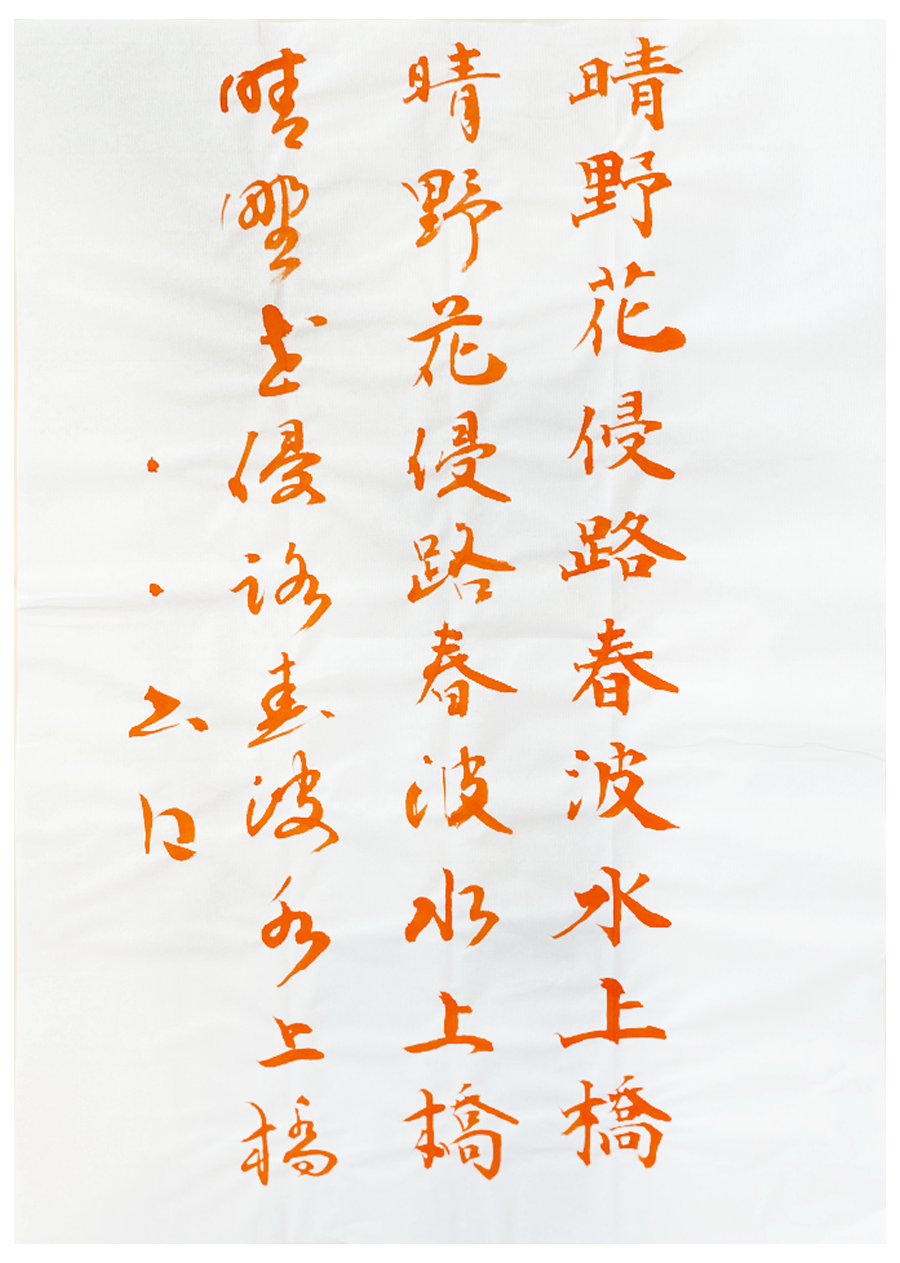 晴野花侵路春波水上橋
晴野花侵路春波水上橋
晴野花侵路春波水上橋